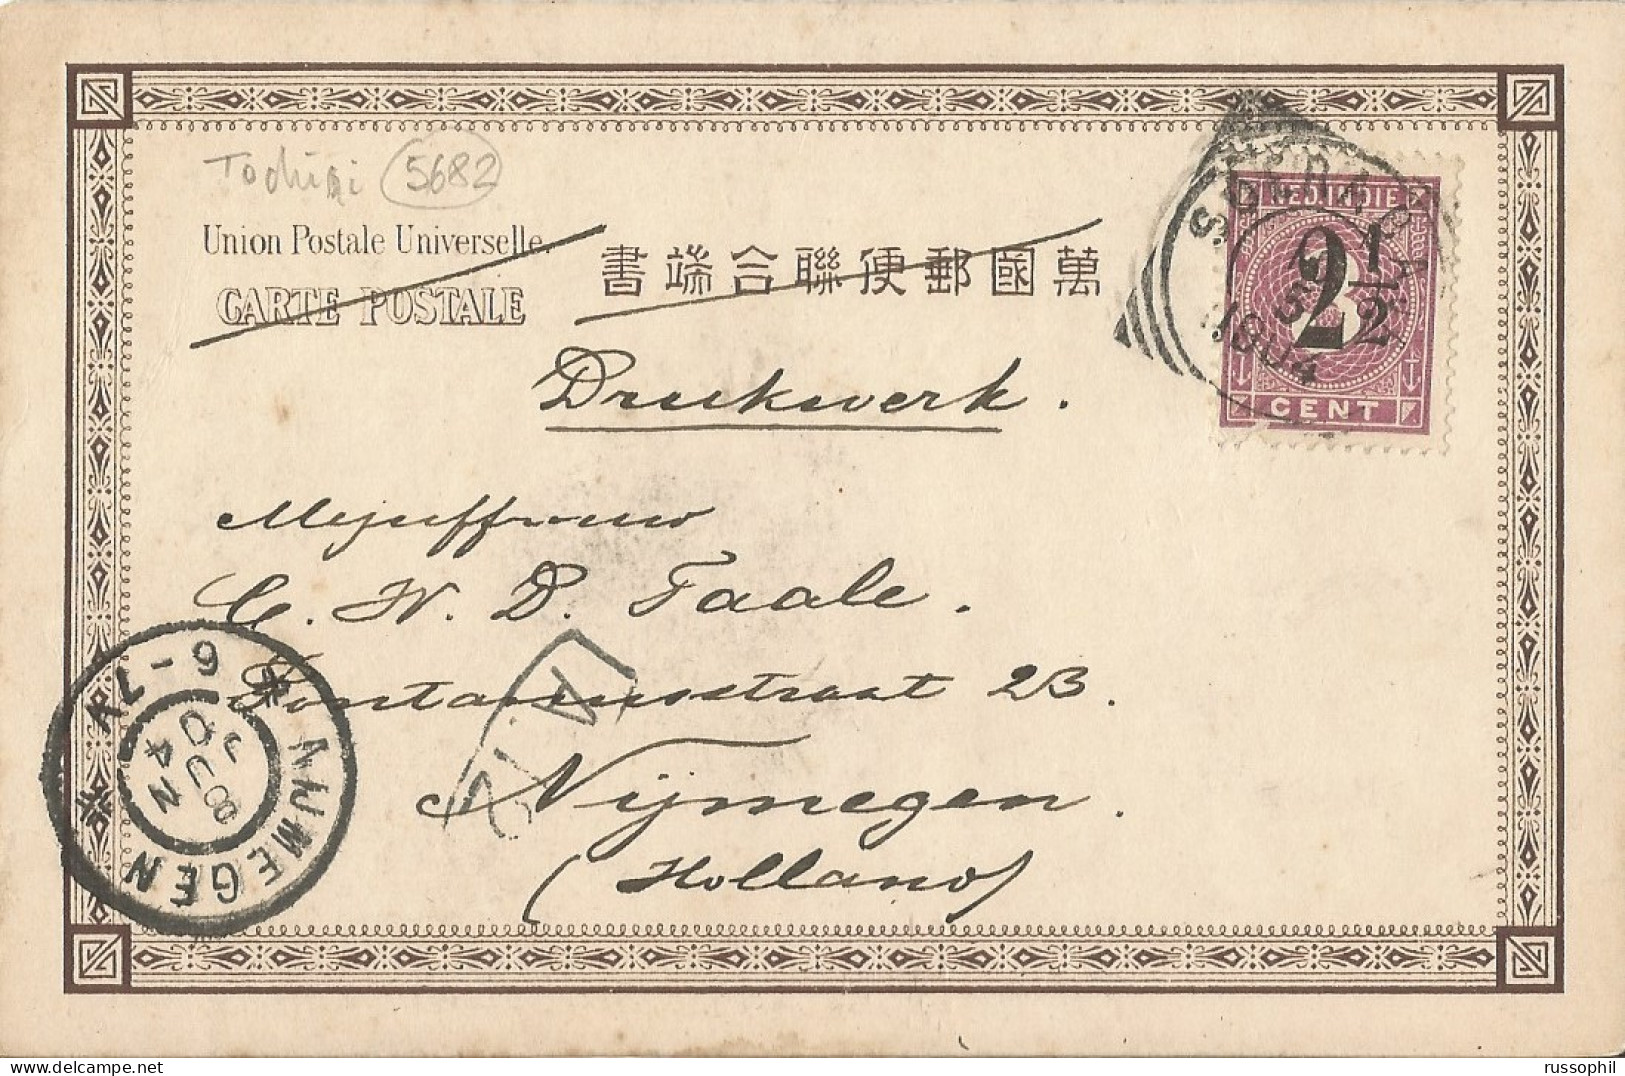 5682
Union Postale Universelle.
CARTE POSTALE
萬國郵便聯合端書
NED-INDIE
2 1/2
CENT
SOERABAJA
1904
Drukwerk.
Mejuffrouw
C. W. D. Taale.
Pontanusstraat 23.
Nijmegen.
(Holland)
NIJMEGEN
6-7V
8 JUN 04
A 12
russophil
www.delcampe.net